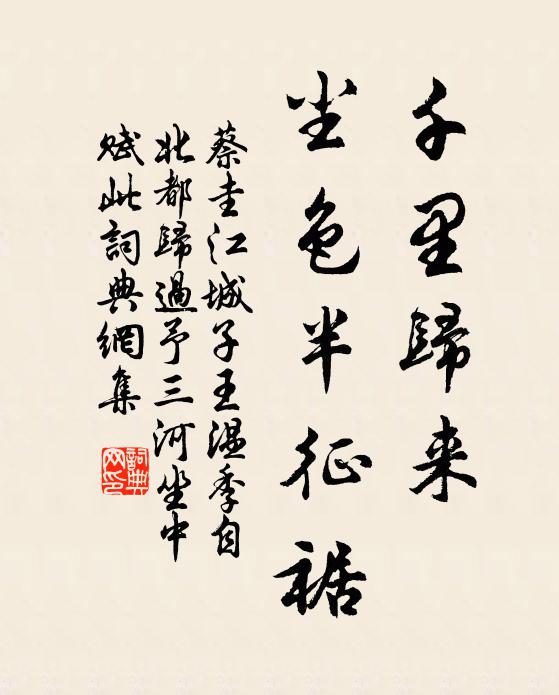 千里歸来
尘色半征裾
蔡圭江城子王温季自
北都歸過予三河坐中
賦此詞典網集
詞典
网印